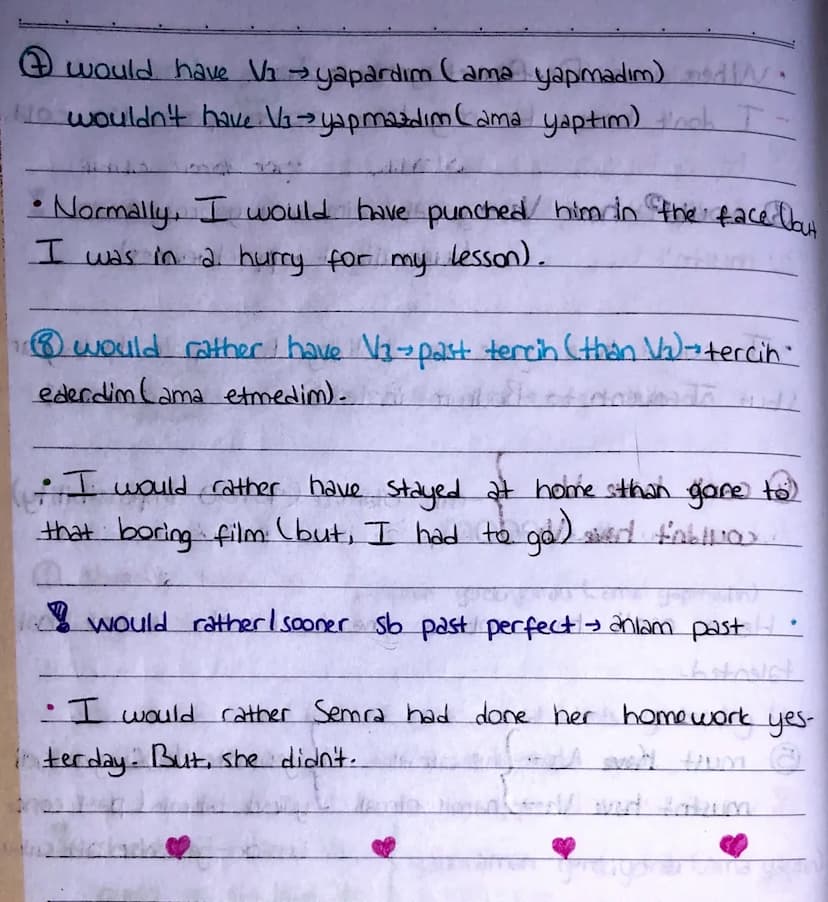 ⑦ would have V3 → yapardım (ama yapmadım)
wouldn't have V3 → yapmazdım (ama yaptım)
• Normally, I would have punched him in the face (but
I was in a hurry for my lesson).
⑧ would rather have V3 → past tercih (than V3) → tercih
ederdim (ama etmedim).
• I would rather have stayed at home than gone to
that boring film (but, I had to go)
! would rather/sooner sb past perfect → anlam past
• I would rather Semra had done her homework yes-
terday. But, she didn't.